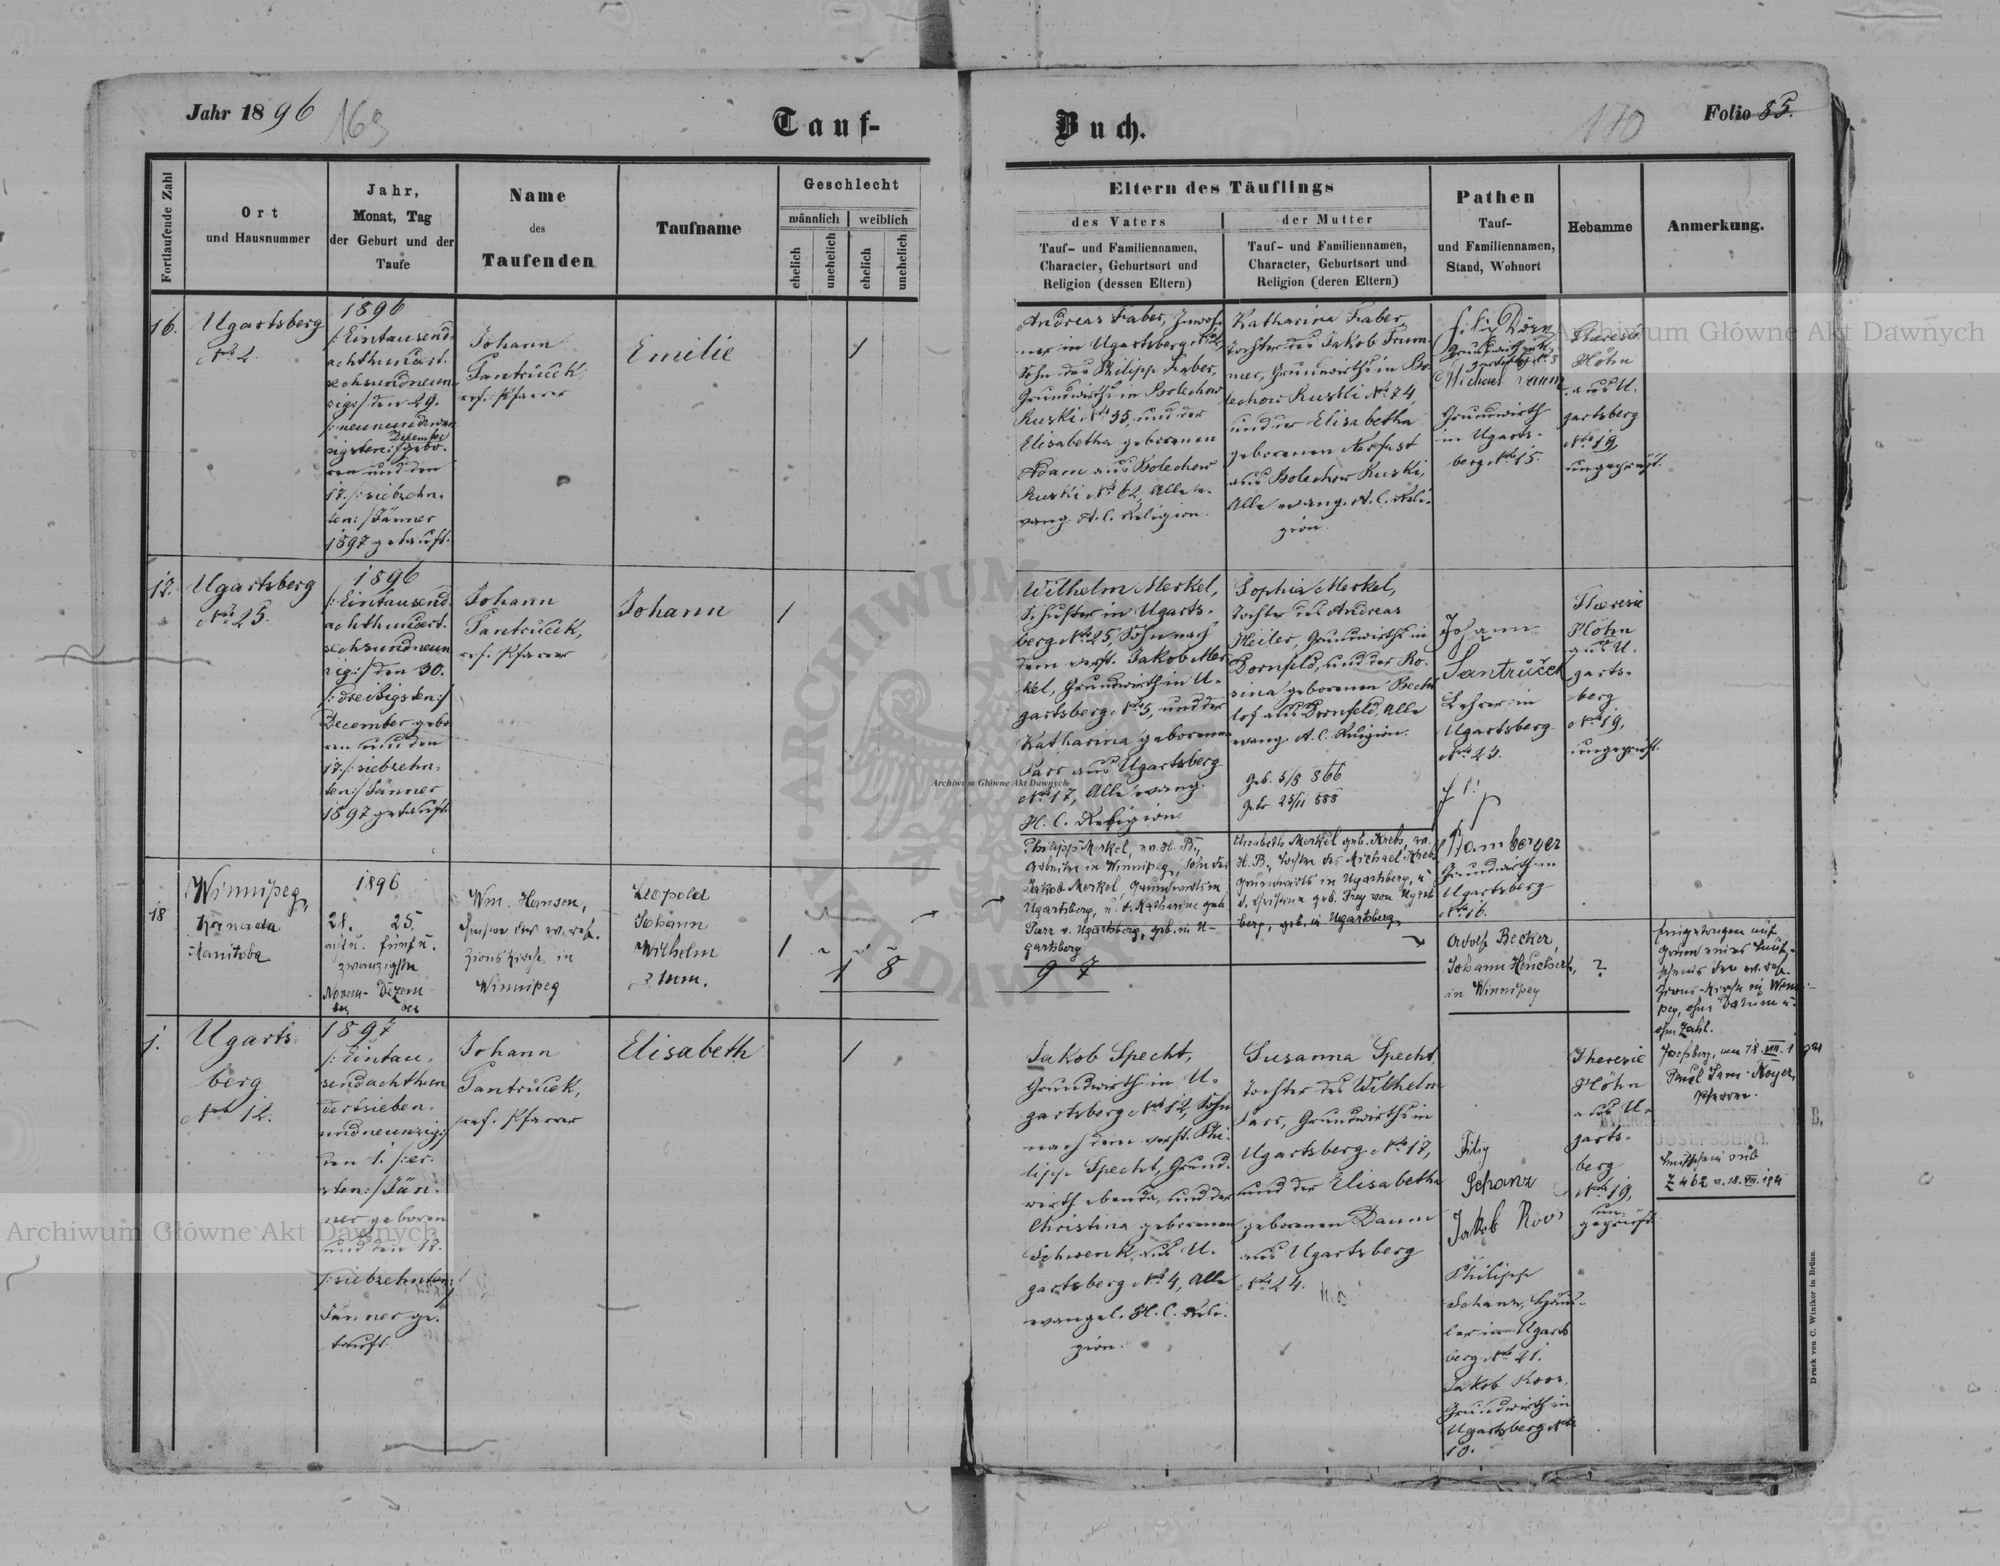 Jahr 1896
163
Tauf-
Buch.
170
Folio 85.
Fortlaufende Zahl
Ort
und Hausnummer
Jahr,
Monat, Tag
der Geburt und der
Taufe
Name
des
Taufenden
Taufname
Geschlecht
männlich
weiblich
ehelich
unehelich
ehelich
unehelich
Eltern des Täuflings
des Vaters
Tauf- und Familiennamen,
Character, Geburtsort und
Religion (dessen Eltern)
der Mutter
Tauf- und Familiennamen,
Character, Geburtsort und
Religion (deren Eltern)
Pathen
Tauf-
und Familiennamen,
Stand, Wohnort
Hebamme
Anmerkung.
16.
Ugartsberg
No 2.
1896
/:Eintausend
achthundert
sechsundneun
zig:/ den 29.
/:neunundzwan
Dezember
zigsten:/ gebo-
ren und den
17. /:siebzehn-
ten:/ Jänner
1897 getauft.
Johann
Jantrucek,
ref. Pfarrer
Emilie
1
Andreas Faber, Inwoh-
ner in Ugartsberg No 2,
Sohn des Philipp Faber,
Grundwirth in Bolechow
Ruski No 55, und der
Elisabetha geborenen
Adam aus Bolechow
Ruski No 62, Alle e-
vang. A. C. Religion.
Katharina Faber,
Tochter des Jakob
Grundwirths in Bo-
lechow Ruski No 74,
und der Elisabetha
geborenen
aus Bolechow Ruski,
Alle evang. A. C. Reli-
gion.
Michael Daum
Grundwirth
in Ugarts-
berg No 15.
Theresie
Höhn
aus U-
gartsberg
No 19,
ungeprüft.
17.
Ugartsberg
No 25.
1896
/:Eintausend
achthundert
sechsundneun
zig:/ den 30.
/:dreißigsten:/
December gebo
ren und den
17. /:siebzehn-
ten:/ Jänner
1897 getauft.
Johann
Jantrucek,
ref. Pfarrer
Johann
1
Wilhelm Merkel,
Schuster in Ugarts-
berg No 25, Sohn nach
dem verst. Jakob Mer
kel, Grundwirth in U-
gartsberg No 5, und der
Katharina geborenen
Parr aus Ugartsberg
No 17, Alle evang.
H. C. Religion.
Sophia Merkel,
Tochter des Andreas
Heiler, Grundwirths in
Dornfeld, und der Ro-
sina geborenen Becht
lof aus Dornfeld, Alle
evang. A. C. Religion.
Geb. 5/8 866
Getr 25/11 888
Johann
Jantrůček
Lehrer in
Ugartsberg
No 23.
Bamberger
Grundwirth in
Ugartsberg
No 16.
Theresie
Höhn
aus U-
garts-
berg
No 19,
ungeprüft.
18
Winnipeg,
Kanada
Manitoba
1896
28. 25.
fünfu.
zwanzigsten
Novem- Dezem
ber ber
Wm. Hansen,
Zionskirche in
Winnipeg
Leopold
Johann
Wilhelm
1
1 8
Philipp Merkel, ev. H. B.,
Arbeiter in Winnipeg, Sohn des
Jakob Merkel Grundwirts in
Ugartsberg, u. d. Katharine geb.
Parr v. Ugartsberg, geb. in U-
gartsberg
9 7
Elisabeth Merkel geb. Krebs, ev.
H. B., Tochter des Michael Krebs
Grundwirts in Ugartsberg, u
d. Christine geb. Frey von Ugarts
berg, geb. in Ugartsberg
Adolf Becker,
Johann
in Winnipeg
?
Eingetragen auf
Grund eines Tauf-
scheins der ev. ref.
Zions-Kirche in Winni-
peg, ohne Datum u.
ohne Zahl.
Josefsberg, am 18. VIII. 1921
Pfarrer.
JOSEFSBERG.
Taufschein sub
Z 462 v. 18. VIII. 1921
1.
Ugarts-
berg
No 12.
1897
/:Eintau-
sendachthun
dertsieben-
undneunzig:/
den 1. /:er-
sten:/ Jän-
ner geboren
und den 17.
/:siebzehnten:/
Jänner ge-
tauft.
Johann
Jantrucek,
ref. Pfarrer
Elisabeth
1
Jakob Specht,
Grundwirth in U-
gartsberg No 12, Sohn
nach dem verst. Phi-
lipp Specht, Grund-
wirth ebenda, und der
Christina geborenen
Schwenk aus U-
gartsberg No 4, Alle
evangel. H. C. Reli-
gion.
Susanna Specht,
Tochter des Wilhelm
Parr, Grundwirths in
Ugartsberg No 17,
und der Elisabetha
geborenen Daum
aus Ugartsberg
No 24.
Filip
Schanz
Jakob Roos
Philipp
Schanz,
in Ugarts
berg No 21.
Jakob Roos,
Grundwirth in
Ugartsberg No
10.
Theresie
Höhn
aus U-
garts-
berg
No 19,
un-
geprüft.
Druck von C. Winiker in Brünn.
Archiwum Główne Akt Dawnych
Archiwum Główne Akt Dawnych
Archiwum Główne Akt Dawnych